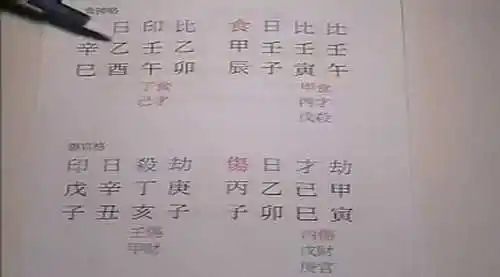 日印比 食日比比
辛乙壬乙 甲壬壬壬
巳酉午卯 辰子寅午
丁食 甲食
己才 丙才
戊殺
印日殺劫 傷日才劫
戊辛丁庚 丙乙己甲
子丑亥子 子卯巳寅
壬傷 丙傷
甲財 戊財
庚官